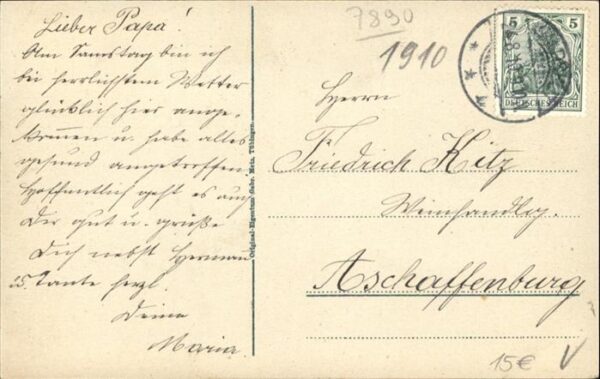 Lieber Papa!
Am Samstag bin ich
bei herrlichstem Wetter
glücklich hier ange-
kommen u. habe alles
gesund angetroffen.
Hoffentlich geht es auch
Dir gut u. grüße
Dich nebst Hermann
u. Tante herzl.
Deine
Maria.
Original-Eigentum Gebr. Metz, Tübingen.
7890
1910
5 5
DEUTSCHES REICH
Herrn
Friedrich Kitz
Weinhandlg.
Aschaffenburg
15€